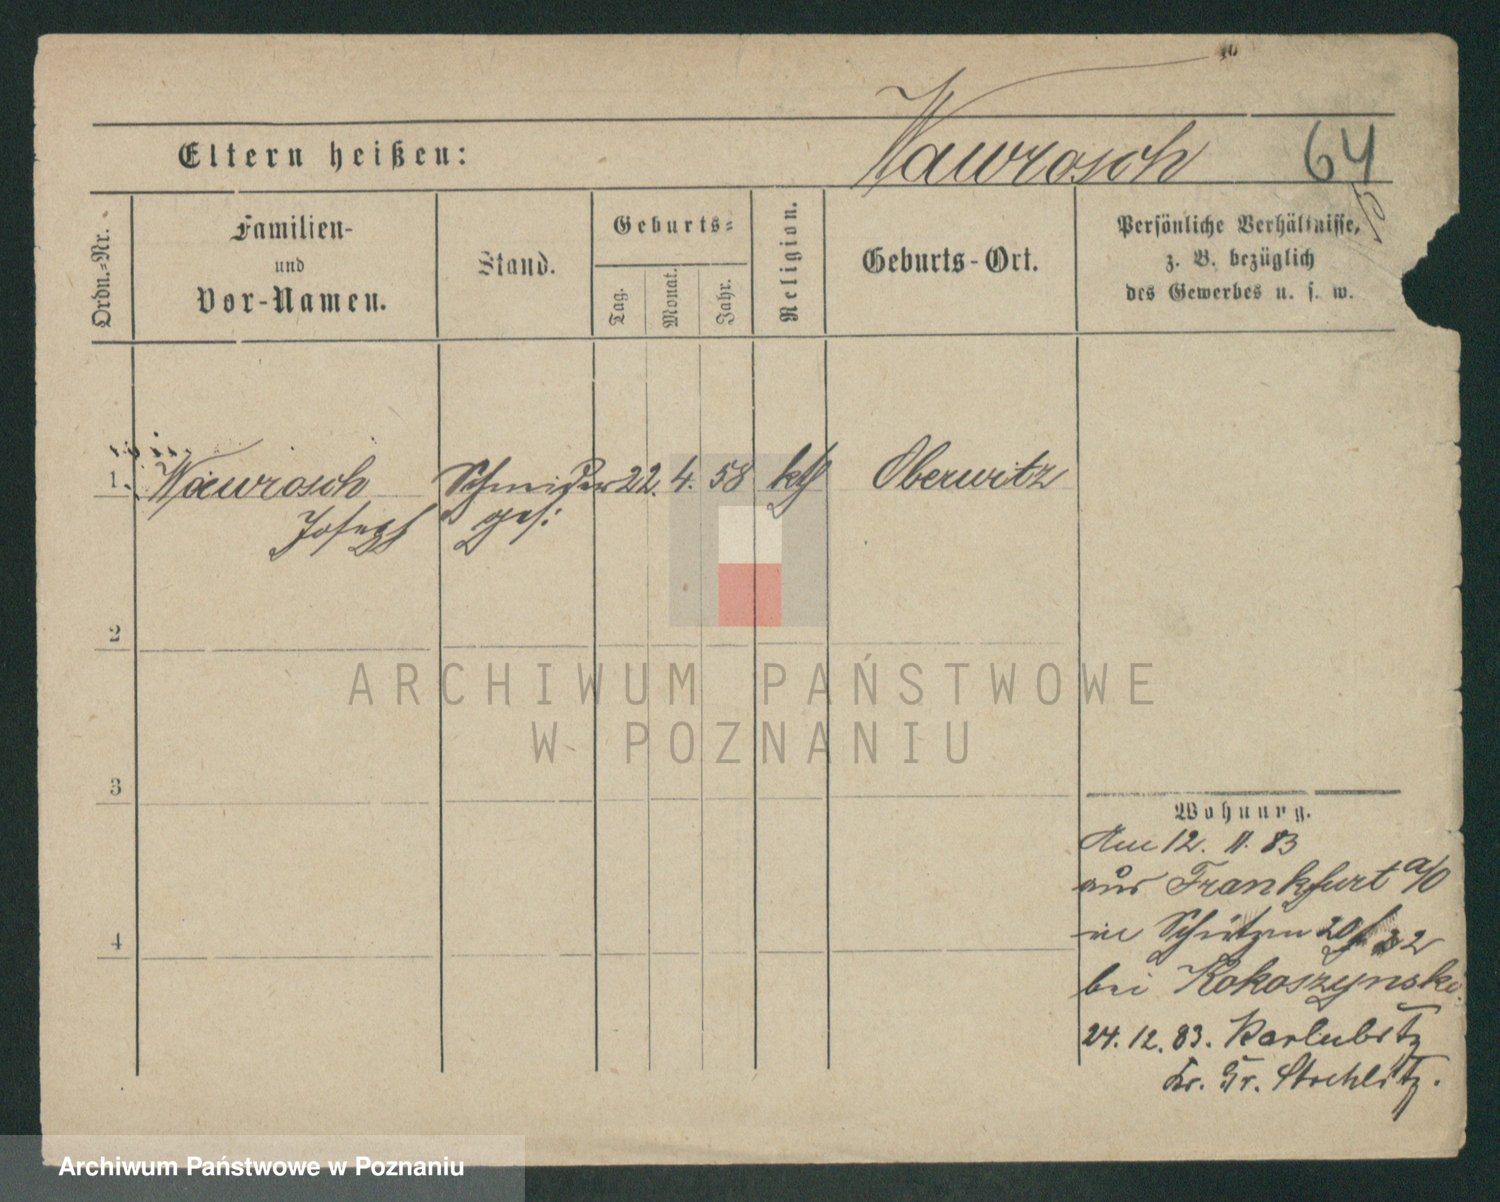 Wawrosch 64
Eltern heißen:
Ordn.-Nr.
Familien-
und
Vor-Namen.
Stand.
Geburts-
Tag.
Monat.
Jahr.
Religion.
Geburts-Ort.
Persönliche Verhältnisse,
z. B. bezüglich
des Gewerbes u. s. w.
1. Wawrosch Schneider 22. 4. 58 kth Oberwitz
Joseph ges:
2
3
4
Wohnung.
Am 12. 11. 83
aus Frankfurt a/O
in Schützen
bei Kokoszynski
24. 12. 83. Karlubitz
Kr. Gr. Strehlitz.
ARCHIWUM PAŃSTWOWE
W POZNANIU
Archiwum Państwowe w Poznaniu